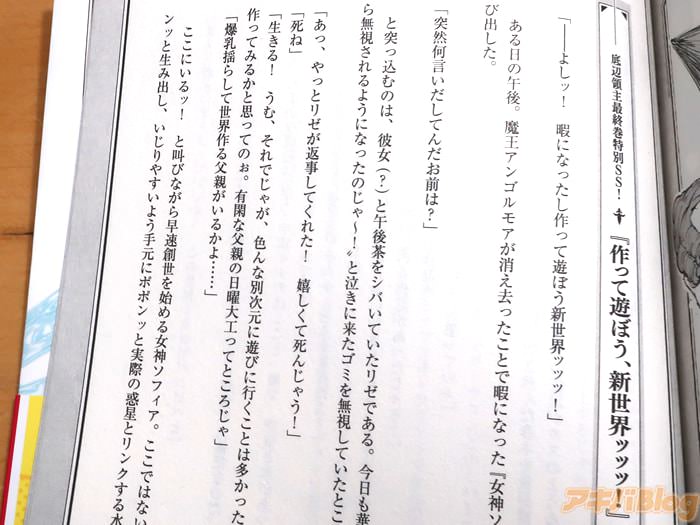 底辺領主最終巻特別SS!
『作って遊ぼう、新世界ッッッ!』
「――よしッ! 暇になったし作って遊ぼう新世界ッッッ!」
ある日の午後。魔王アンゴルモアが消え去ったことで暇になった『女神ソ
び出した。
「突然何言いだしてんだお前は?」
と突っ込むのは、彼女(?)と午後茶をシバいていたリゼである。今日も華
ら無視されるようになったのじゃ〜!〟と泣きに来たゴミを無視していたとこ
「あっ、やっとリゼが返事してくれた! 嬉しくて死んじゃう!」
「死ね」
「生きる! うむ、それでじゃが、色んな別次元に遊びに行くことは多かった
作ってみるかと思ってのぉ。有閑な父親の日曜大工ってところじゃ」
「爆乳揺らして世界作る父親がいるかよ……」
ここにいるッ! と叫びながら早速創世を始める女神ソフィア。ここではない
ンッと生み出し、いじりやすいよう手元にポポンッと実際の惑星とリンクする水
アキバBlog